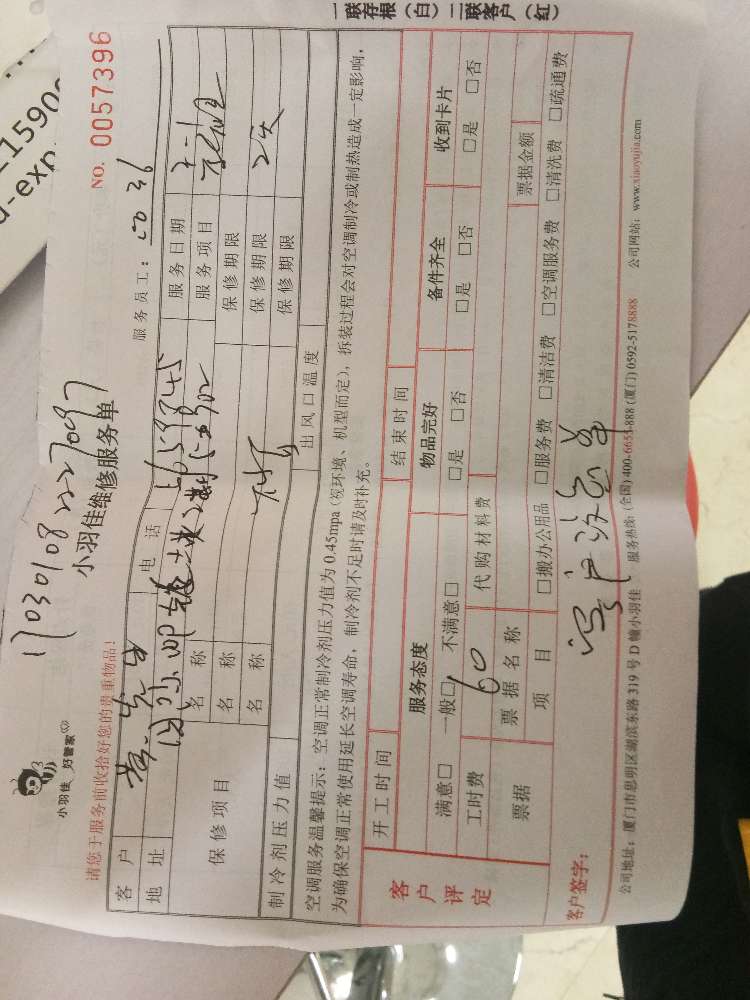 一联存根（白）二联客户（红）
1590
d-exp
NO. 0057396
小羽佳 好管家
小羽佳维修服务单
请您于服务前收拾好您的贵重物品!
服务员工：
客户 电话 服务日期
地址 服务项目
保修项目 名称 保修期限
名称 保修期限
名称 保修期限
制冷剂压力值 出风口温度
空调服务温馨提示：空调正常制冷剂压力值为0.45mpa（视环境、机型而定），拆装过程会对空调制冷或制热造成一定影响，
为确保空调正常使用延长空调寿命，制冷剂不足时请及时补充。
客户评定
开工时间 结束时间
服务态度 物品完好 备件齐全 收到卡片
满意□ 一般□ 不满意□ □是 □否 □是 □否 □是 □否
工时费 60 代购材料费
票据 票据名称 票据金额
项目 □搬办公用品 □服务费 □清洁费 □空调服务费 □清洗费 □疏通费
客户签字：
公司地址：厦门市思明区湖滨东路319号D幢小羽佳 服务热线：(全国) 400-6655-888 (厦门) 0592-5178888 公司网站：www.xiaoyujia.com